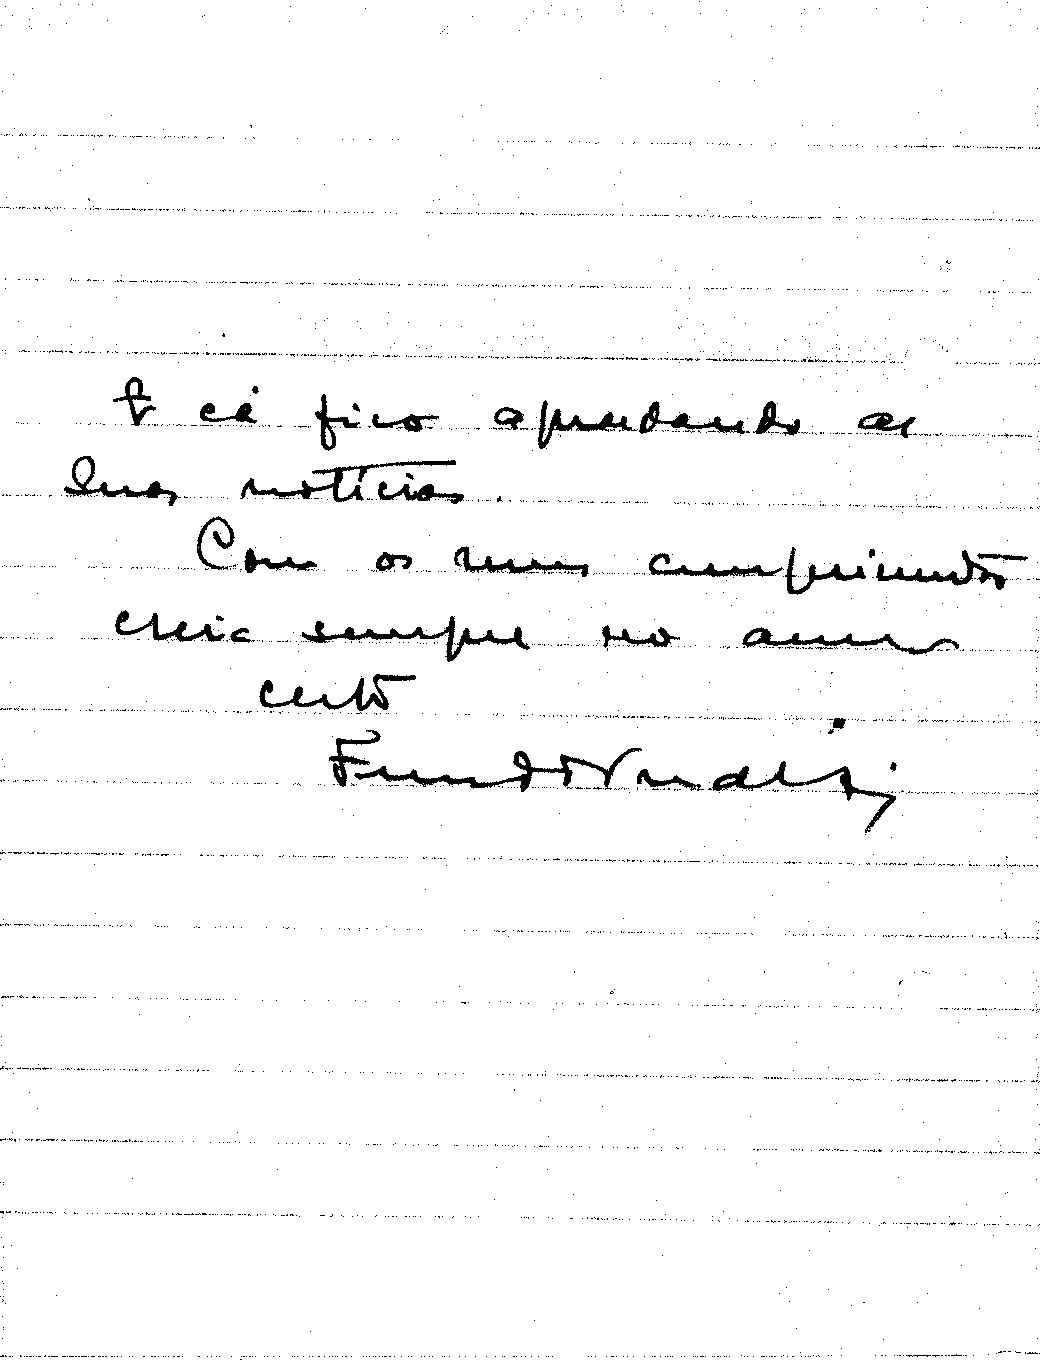 E cá fico aguardando as
suas notícias.
Com os meus cumprimentos
creia sempre no
certo